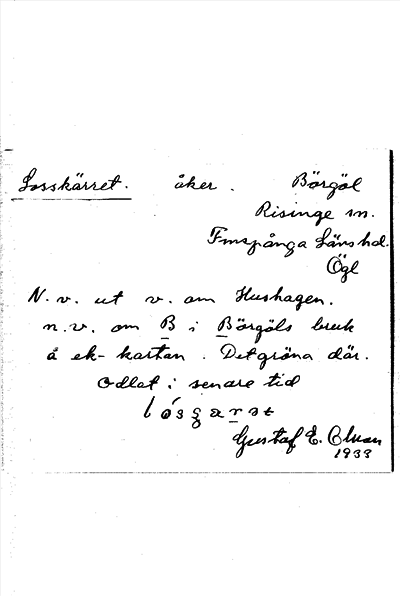 Losskärret. åker. Börgöl
Risinge sn.
Finspånga Läns hd.
Ögl
N. v. ut v. om Hushagen.
n. v. om B i Börgöls bruk
å ek-kartan. Det gröna där.
Odlat i senare tid
Gustaf E. Olsson
1933